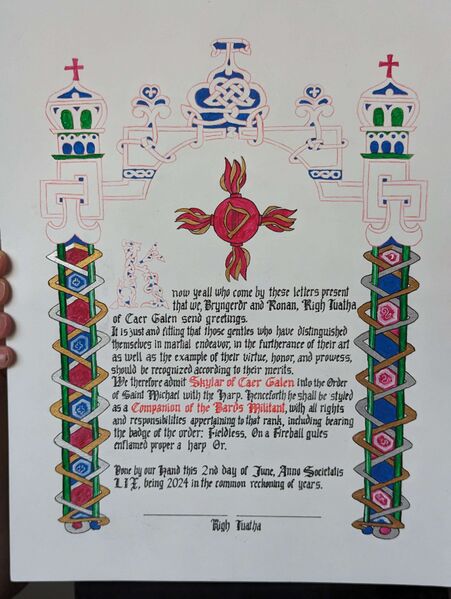 Know ye all who come by these letters present
that we, Bryngerdr and Ronan, Righ Tuatha
of Caer Galen send greetings.
It is just and fitting that those gentles who have distinguished
themselves in martial endeavor, in the furtherance of their art
as well as the example of their virtue, honor, and prowess,
should be recognized according to their merits.
We therefore admit Skylar of Caer Galen into the Order
of Saint Michael with the Harp. Henceforth he shall be styled
as a Companion of the Bards Militant, with all rights
and responsibilities appertaining to that rank, including bearing
the badge of the order: Fieldless, On a Fireball gules
enflamed proper a harp Or.
Done by our Hand this 2nd day of June, Anno Societatis
LIX, being 2024 in the common reckoning of years.
Righ Tuatha